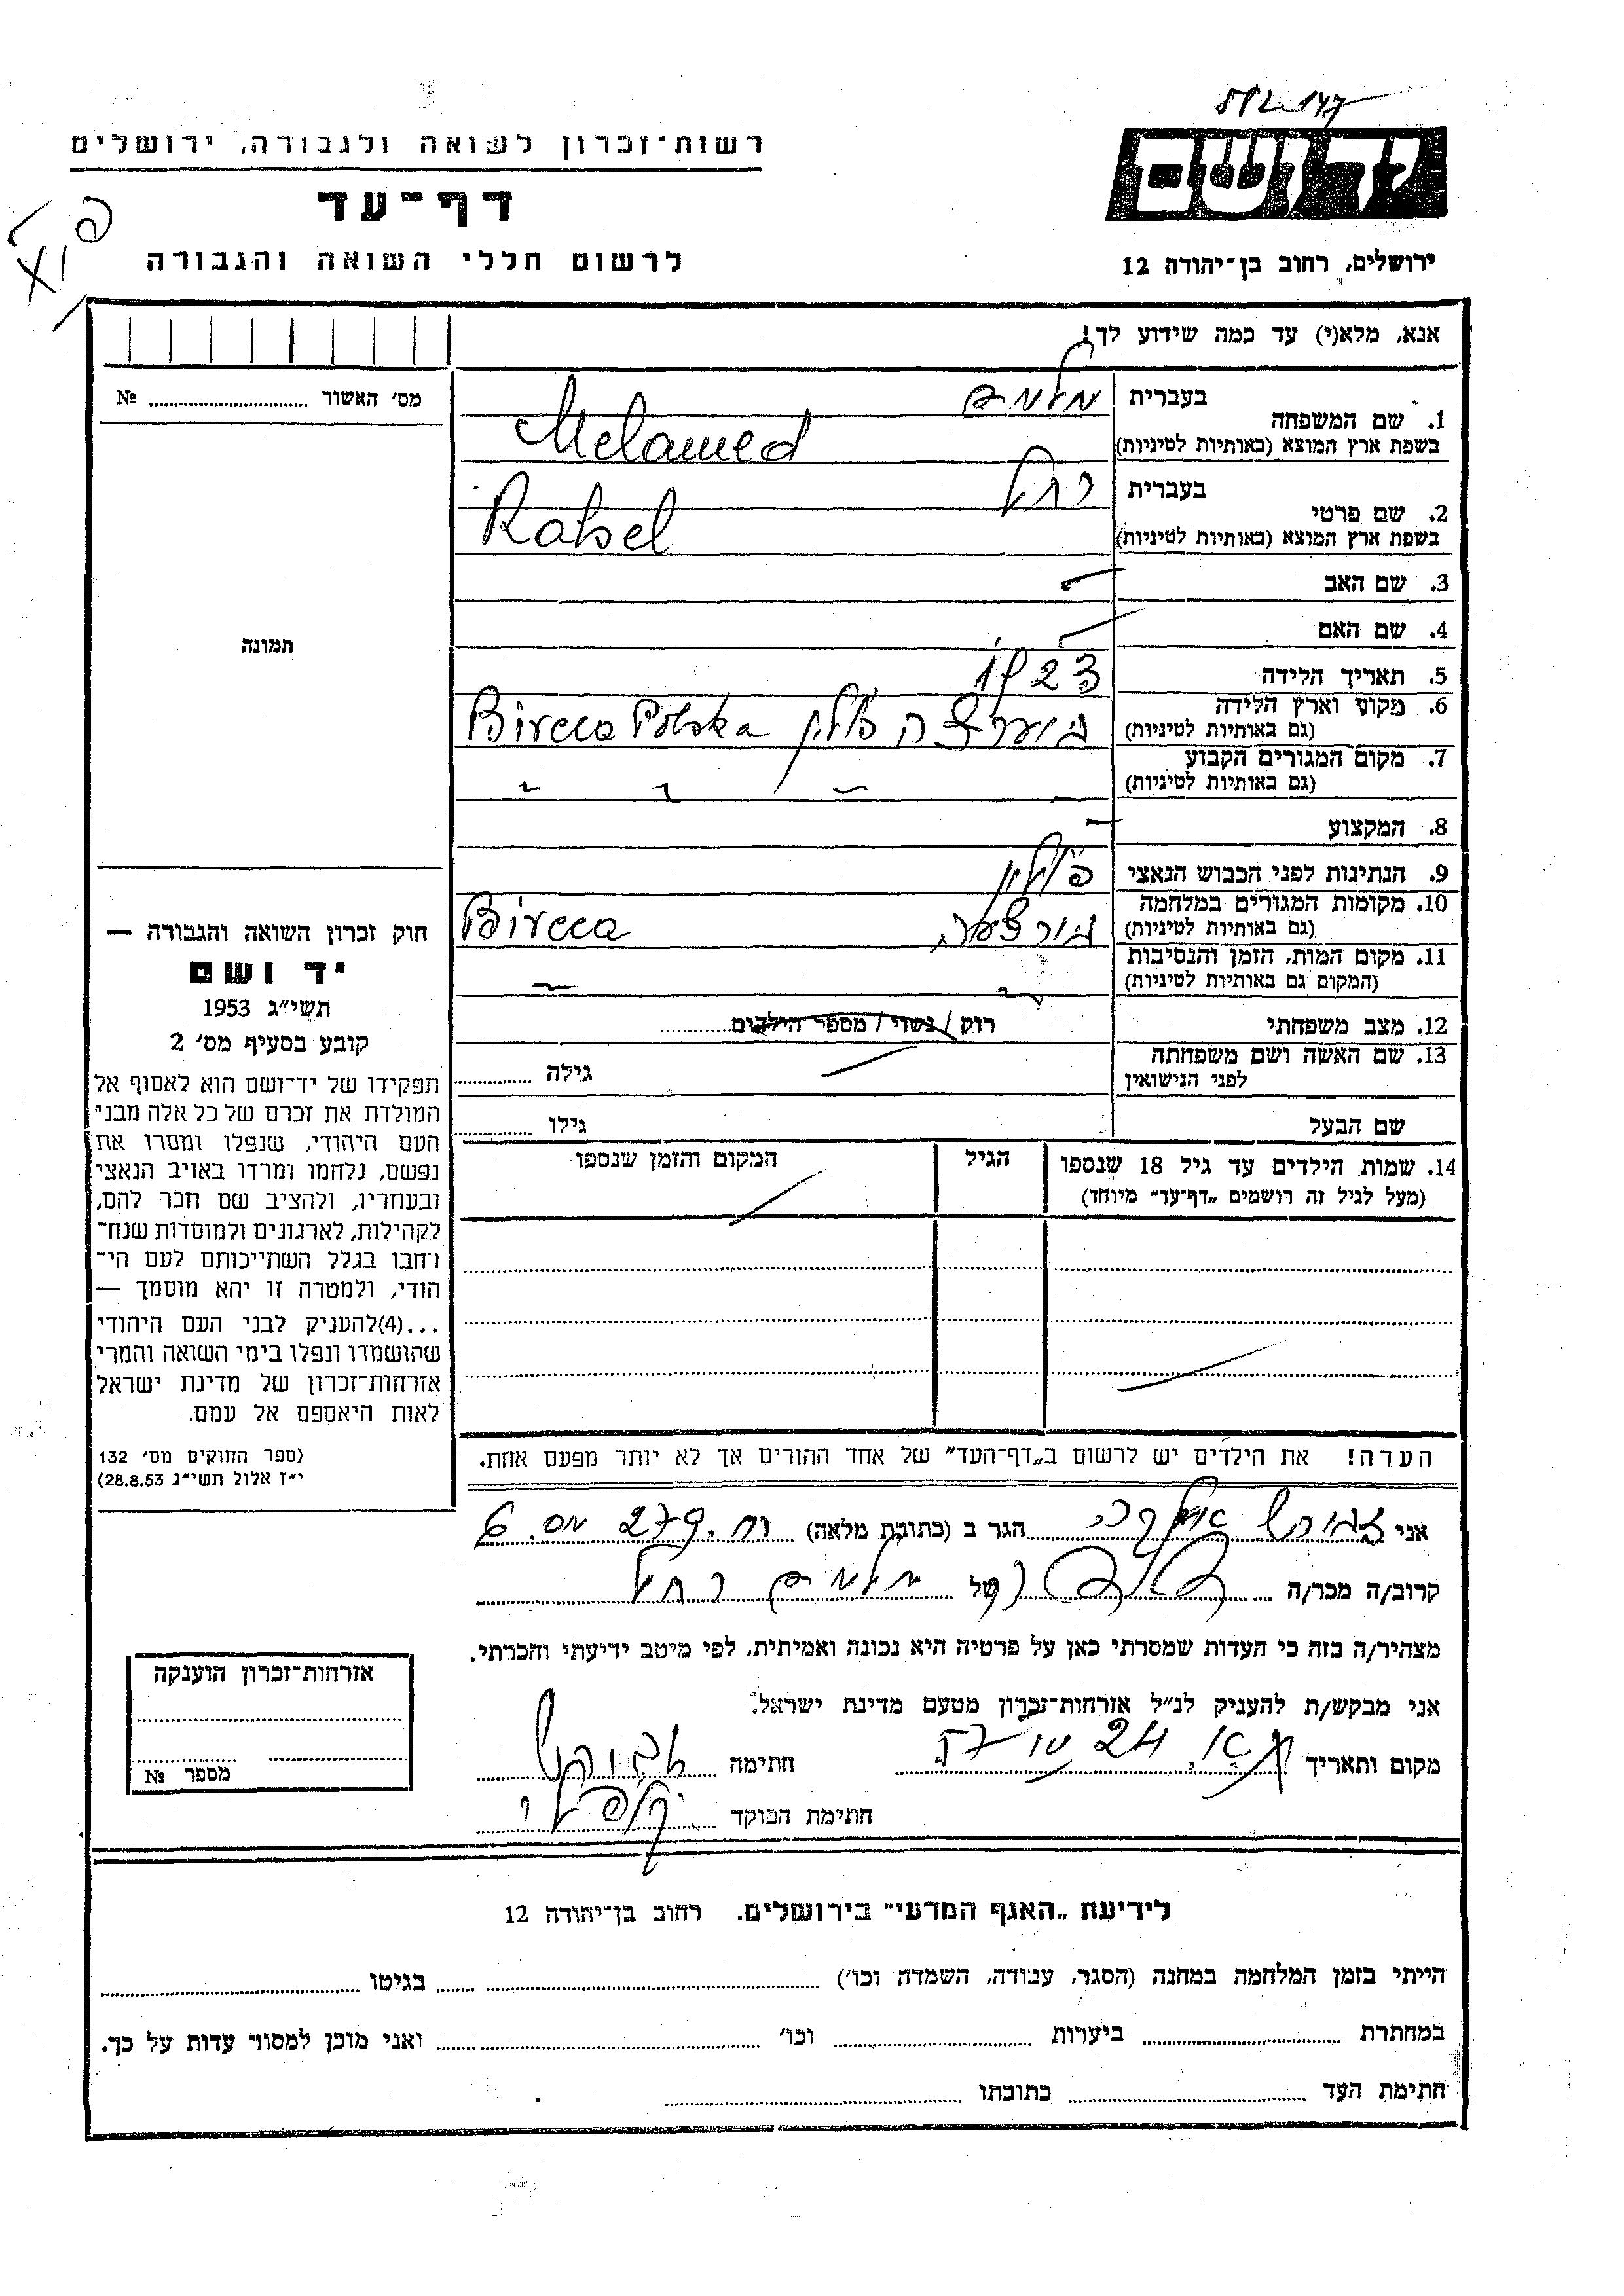 רשות־זכרון לשואה ולגבורה, ירושלים
דף־עד
לרשום חללי השואה והגבורה
יד ושם
ירושלים, רחוב בן־יהודה 12
אנא, מלא(י) עד כמה שידוע לך!
מס׳ האשור № ........
1. שם המשפחה
בעברית מלמד
בשפת ארץ המוצא (באותיות לטיניות) Melamed
2. שם פרטי
בעברית רחל
בשפת ארץ המוצא (באותיות לטיניות) Rahel
3. שם האב
4. שם האם
5. תאריך הלידה 1923
6. מקום וארץ הלידה
(גם באותיות לטיניות) פולין Bircca Polska
7. מקום המגורים הקבוע
(גם באותיות לטיניות)
8. המקצוע
9. הנתינות לפני הכבוש הנאצי פולין
10. מקומות המגורים במלחמה
(גם באותיות לטיניות) Bircca
11. מקום המות, הזמן והנסיבות
(המקום גם באותיות לטיניות)
12. מצב משפחתי רוק / נשוי / מספר הילדים ........
13. שם האשה ושם משפחתה
לפני הנישואין גילה ........
שם הבעל גילו ........
14. שמות הילדים עד גיל 18 שנספו הגיל המקום והזמן שנספו
(מעל לגיל זה רושמים „דף־עד״ מיוחד)
הערה! את הילדים יש לרשום ב„דף־העד״ של אחד ההורים אך לא יותר מפעם אחת.
תמונה
חוק זכרון השואה והגבורה —
יד ושם
תשי״ג 1953
קובע בסעיף מס׳ 2
תפקידו של יד־ושם הוא לאסוף אל
המולדת את זכרם של כל אלה מבני
העם היהודי, שנפלו ומסרו את
נפשם, נלחמו ומרדו באויב הנאצי
ובעוזריו, ולהציב שם וזכר להם,
לקהילות, לארגונים ולמוסדות שנח־
רחבו בגלל השתייכותם לעם הי־
הודי, ולמטרה זו יהא מוסמך —
...(4)להעניק לבני העם היהודי
שהושמדו ונפלו בימי השואה והמרי
אזרחות־זכרון של מדינת ישראל
לאות היאספם אל עמם.
(ספר החוקים מס׳ 132
י״ז אלול תשי״ג 28.8.53)
אני הגר ב (כתובת מלאה) רח. 279 מס. 6
קרוב/ה מכר/ה של מלמד רחל
מצהיר/ה בזה כי העדות שמסרתי כאן על פרטיה היא נכונה ואמיתית, לפי מיטב ידיעתי והכרתי.
אני מבקש/ת להעניק לנ״ל אזרחות־זכרון מטעם מדינת ישראל.
מקום ותאריך חתימה
חתימת הפוקד
אזרחות־זכרון הוענקה
מספר №
לידיעת „האגף המדעי״ בירושלים, רחוב בן־יהודה 12
הייתי בזמן המלחמה במחנה (הסגר, עבודה, השמדה וכו׳) ........ בגיטו ........
במחתרת ........ ביערות ........ וכו׳ ........ ואני מוכן למסור עדות על כך.
חתימת העד ........ כתובתו ........